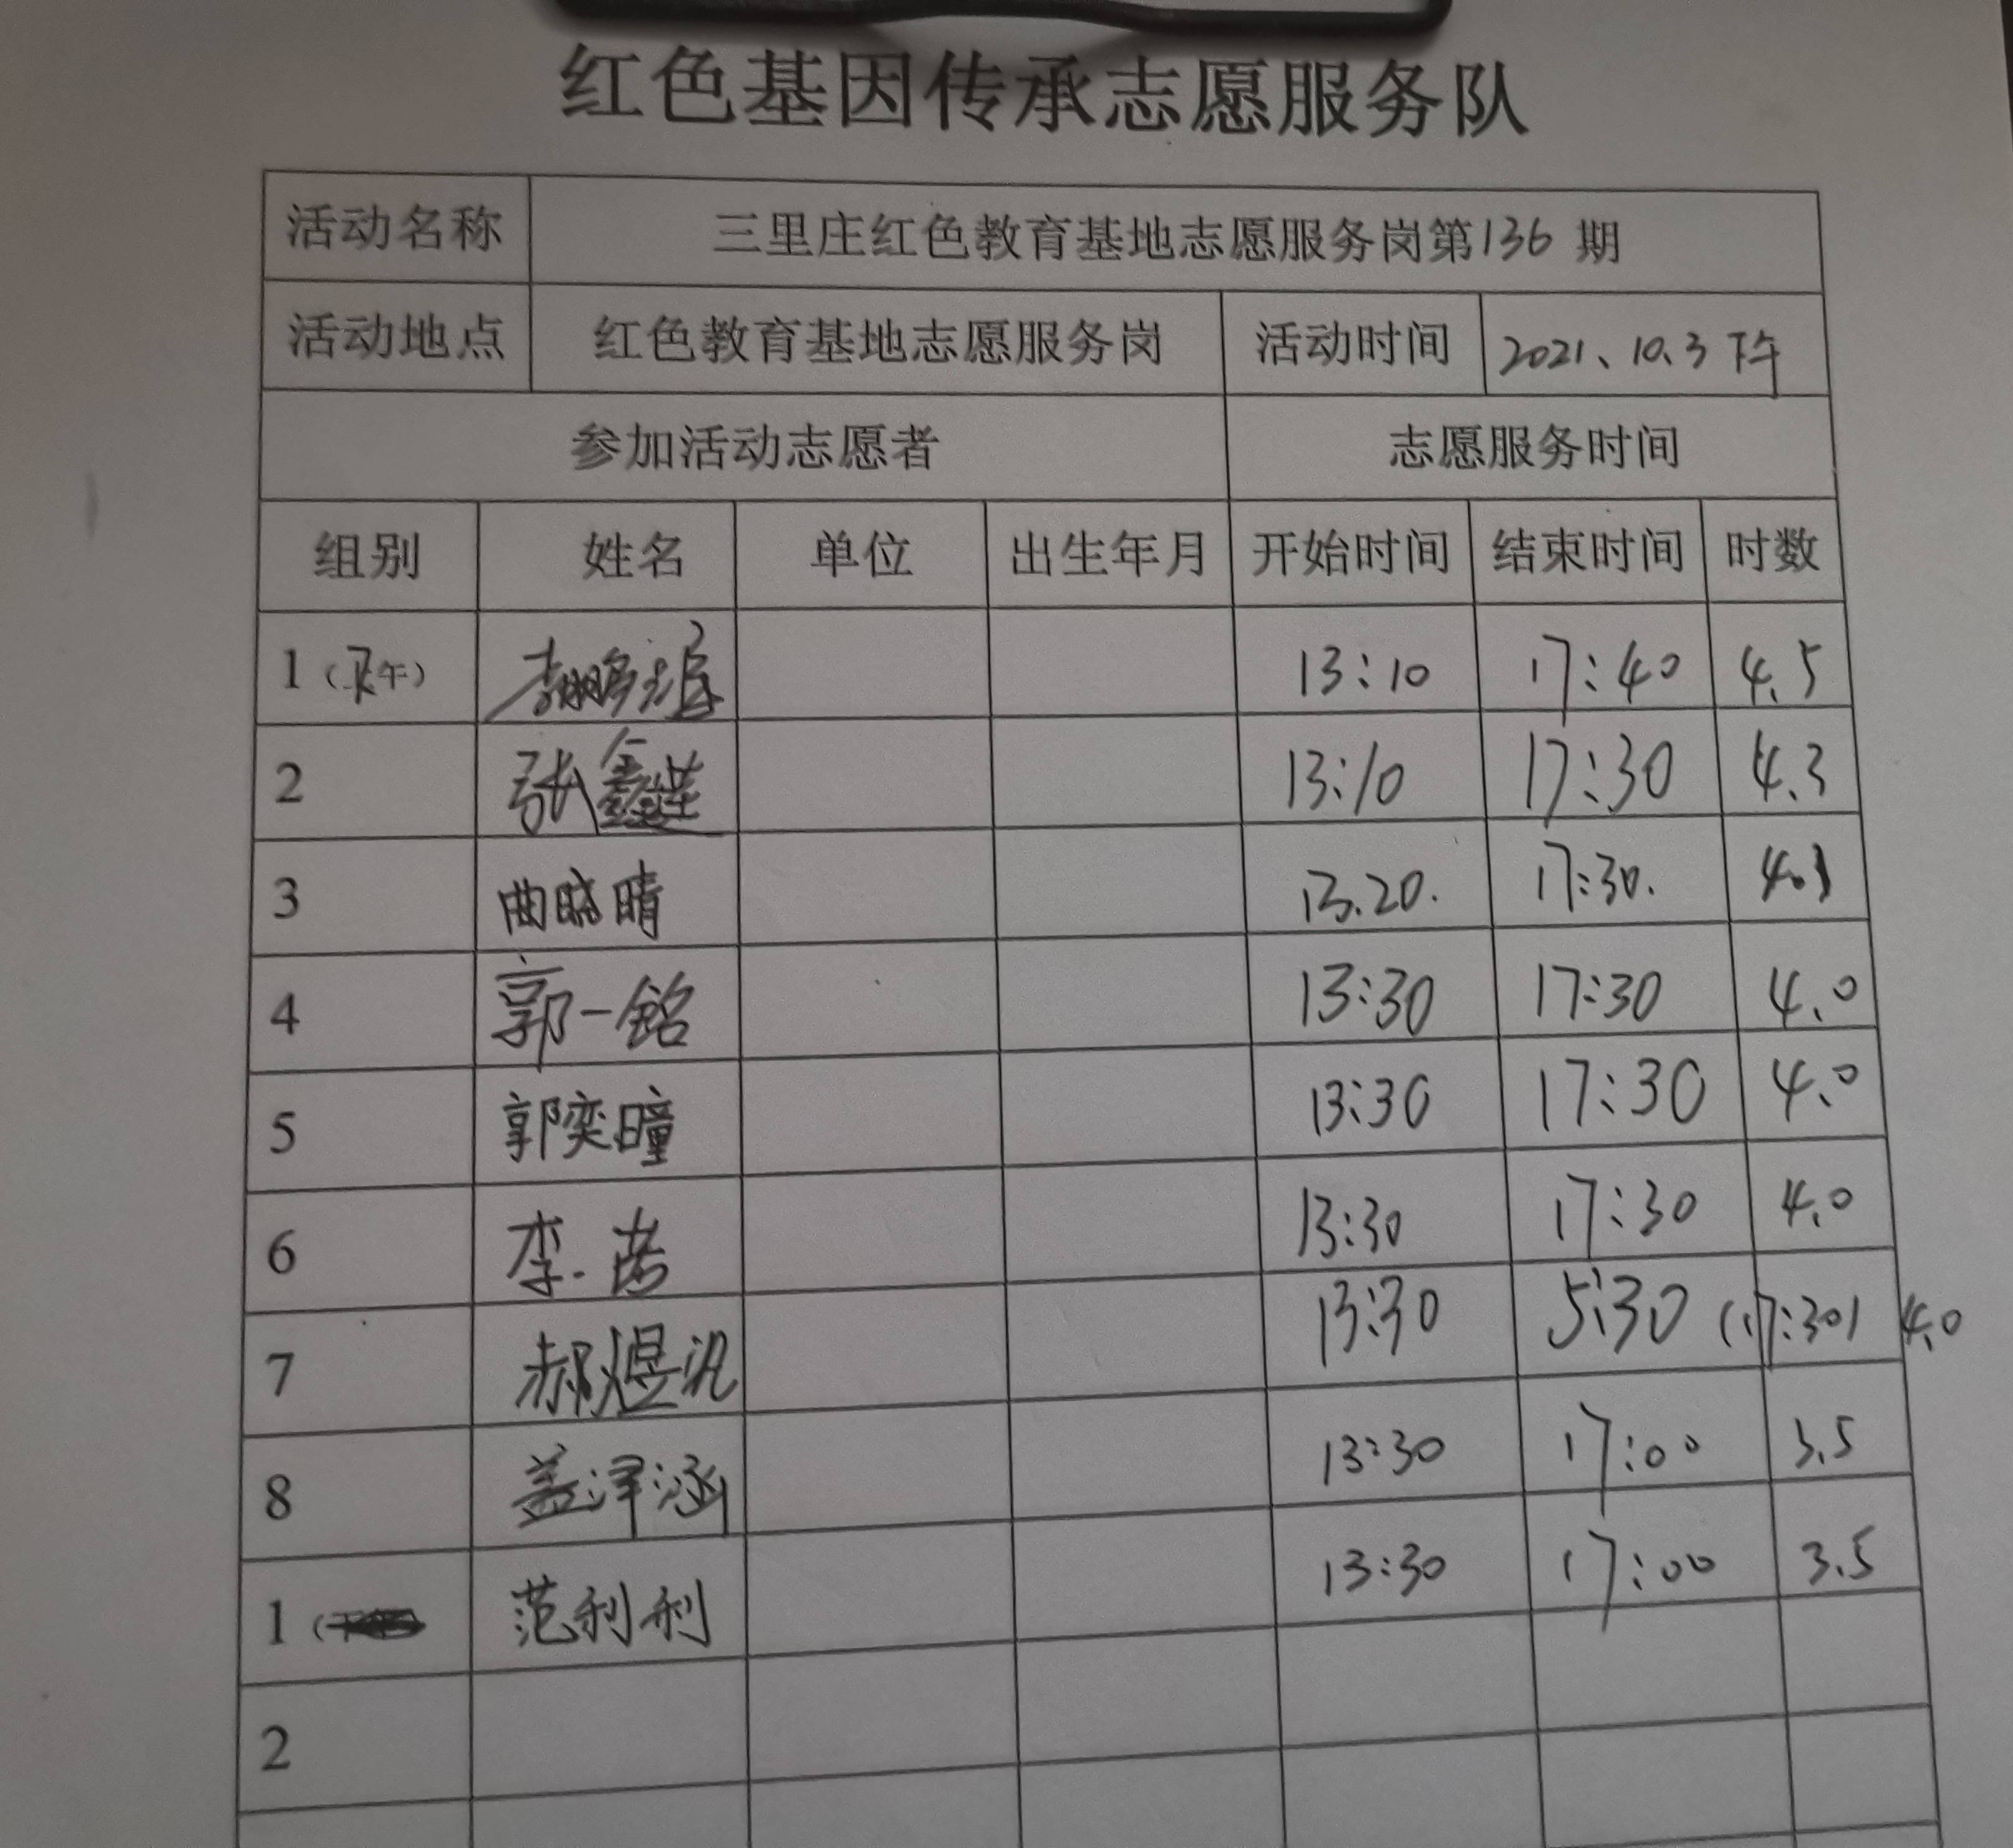 红色基因传承志愿服务队
活动名称 三里庄红色教育基地志愿服务岗第136 期
活动地点 红色教育基地志愿服务岗 活动时间 2021、10、3 下午
参加活动志愿者 志愿服务时间
组别 姓名 单位 出生年月 开始时间 结束时间 时数
1（下午） 13:10 17:40 4.5
2 张鑫 13:10 17:30 4.3
3 曲晓晴 13.20. 17:30. 4.1
4 郭一铭 13:30 17:30 4.0
5 郭奕曈 13:30 17:30 4.0
6 李 13:30 17:30 4.0
7 郝煜 13:30 5:30 (17:30) 4.0
8 盖泽涵 13:30 17:00 3.5
1（ 范利利 13:30 17:00 3.5
2